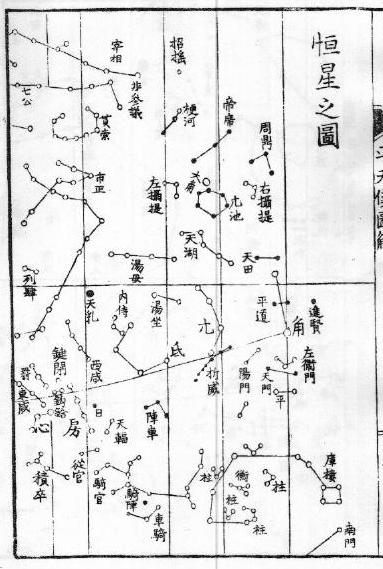 恒星之圖
招搖
宰相
七公
貫索
梗河
帝席
周鼎
大角
亢池
右攝提
左攝提
市正
天湖
天田
湯母
列肆
天乳
內侍
湯坐
亢
平道
進賢
角
氐
折威
左衞門
天門
平
陽門
鍵閉
西咸
東咸
心
房
日
天輻
陣車
從官
積卒
騎官
騎陣
車騎
柱
衡
柱
柱
柱
庫樓
南門